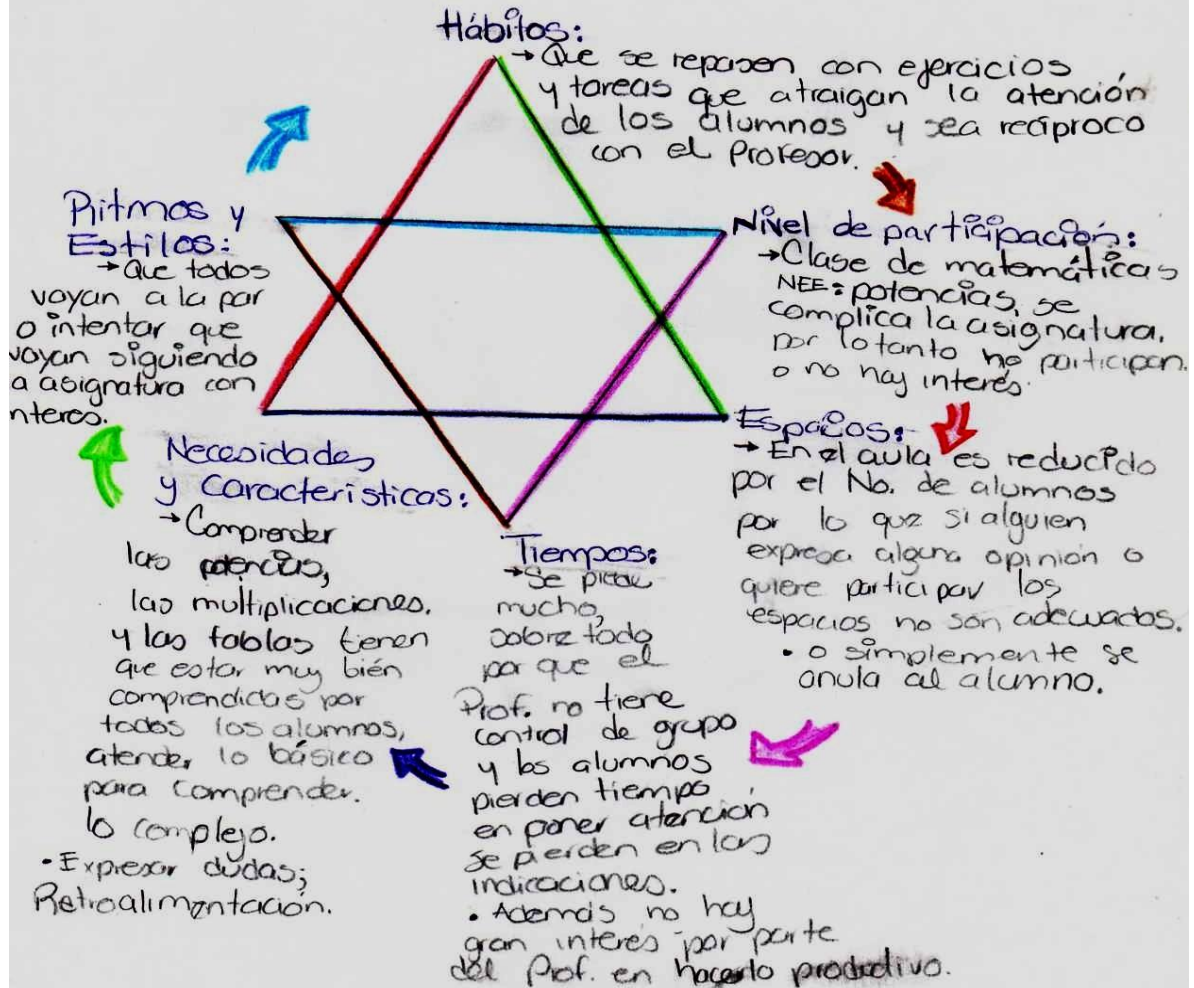 Hábitos:
→ Que se repasen con ejercicios
y tareas que atraigan la atención
de los alumnos y sea recíproco
con el Profesor.
Nivel de participación:
→ Clase de matemáticas
NEE: potencias, se
complica la asignatura,
por lo tanto no participan.
o no hay interés.
Espacios:
→ En el aula es reducido
por el No. de alumnos
por lo que si alguien
expresa alguna opinión o
quiere participar los
espacios no son adecuados.
• o simplemente se
anula al alumno.
Tiempos:
→ Se pierde
mucho,
sobre todo
por que el
Prof. no tiene
control de grupo
y los alumnos
pierden tiempo
en poner atención
se pierden en las
indicaciones.
• Además no hay
gran interés por parte
del Prof. en hacerlo productivo.
Necesidades
y Características:
→ Comprender
las potencias,
las multiplicaciones.
y las tablas tienen
que estar muy bién
comprendidas por
todos los alumnos,
atender lo básico
para comprender.
lo complejo.
• Expresar dudas;
Retroalimentación.
Ritmos y
Estilos:
→ Que todos
vayan a la par
o intentar que
vayan siguiendo
a asignatura con
nteres.